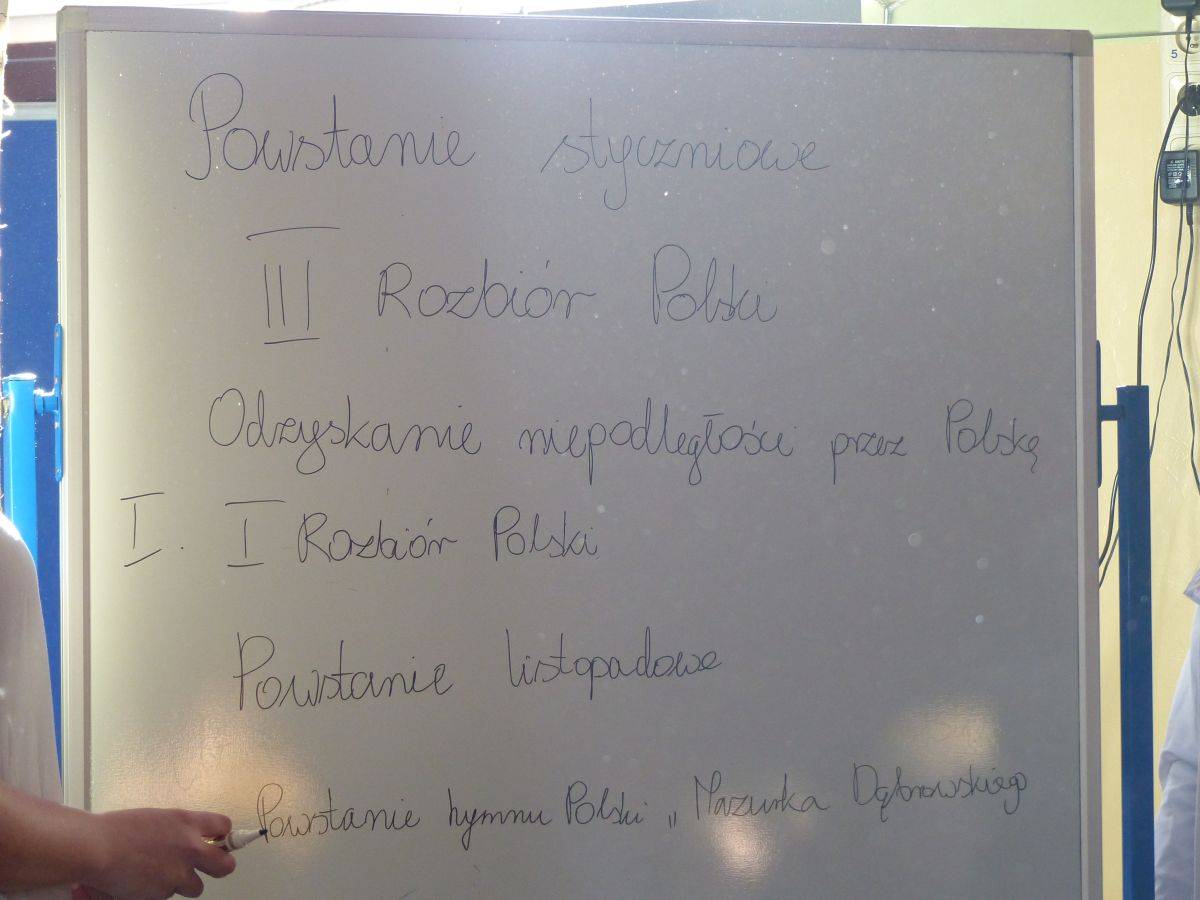 Powstanie styczniowe
III Rozbiór Polski
Odzyskanie niepodległości przez Polskę
I. I Rozbiór Polski
Powstanie listopadowe
Powstanie hymnu Polski „Mazurka Dąbrowskiego
5